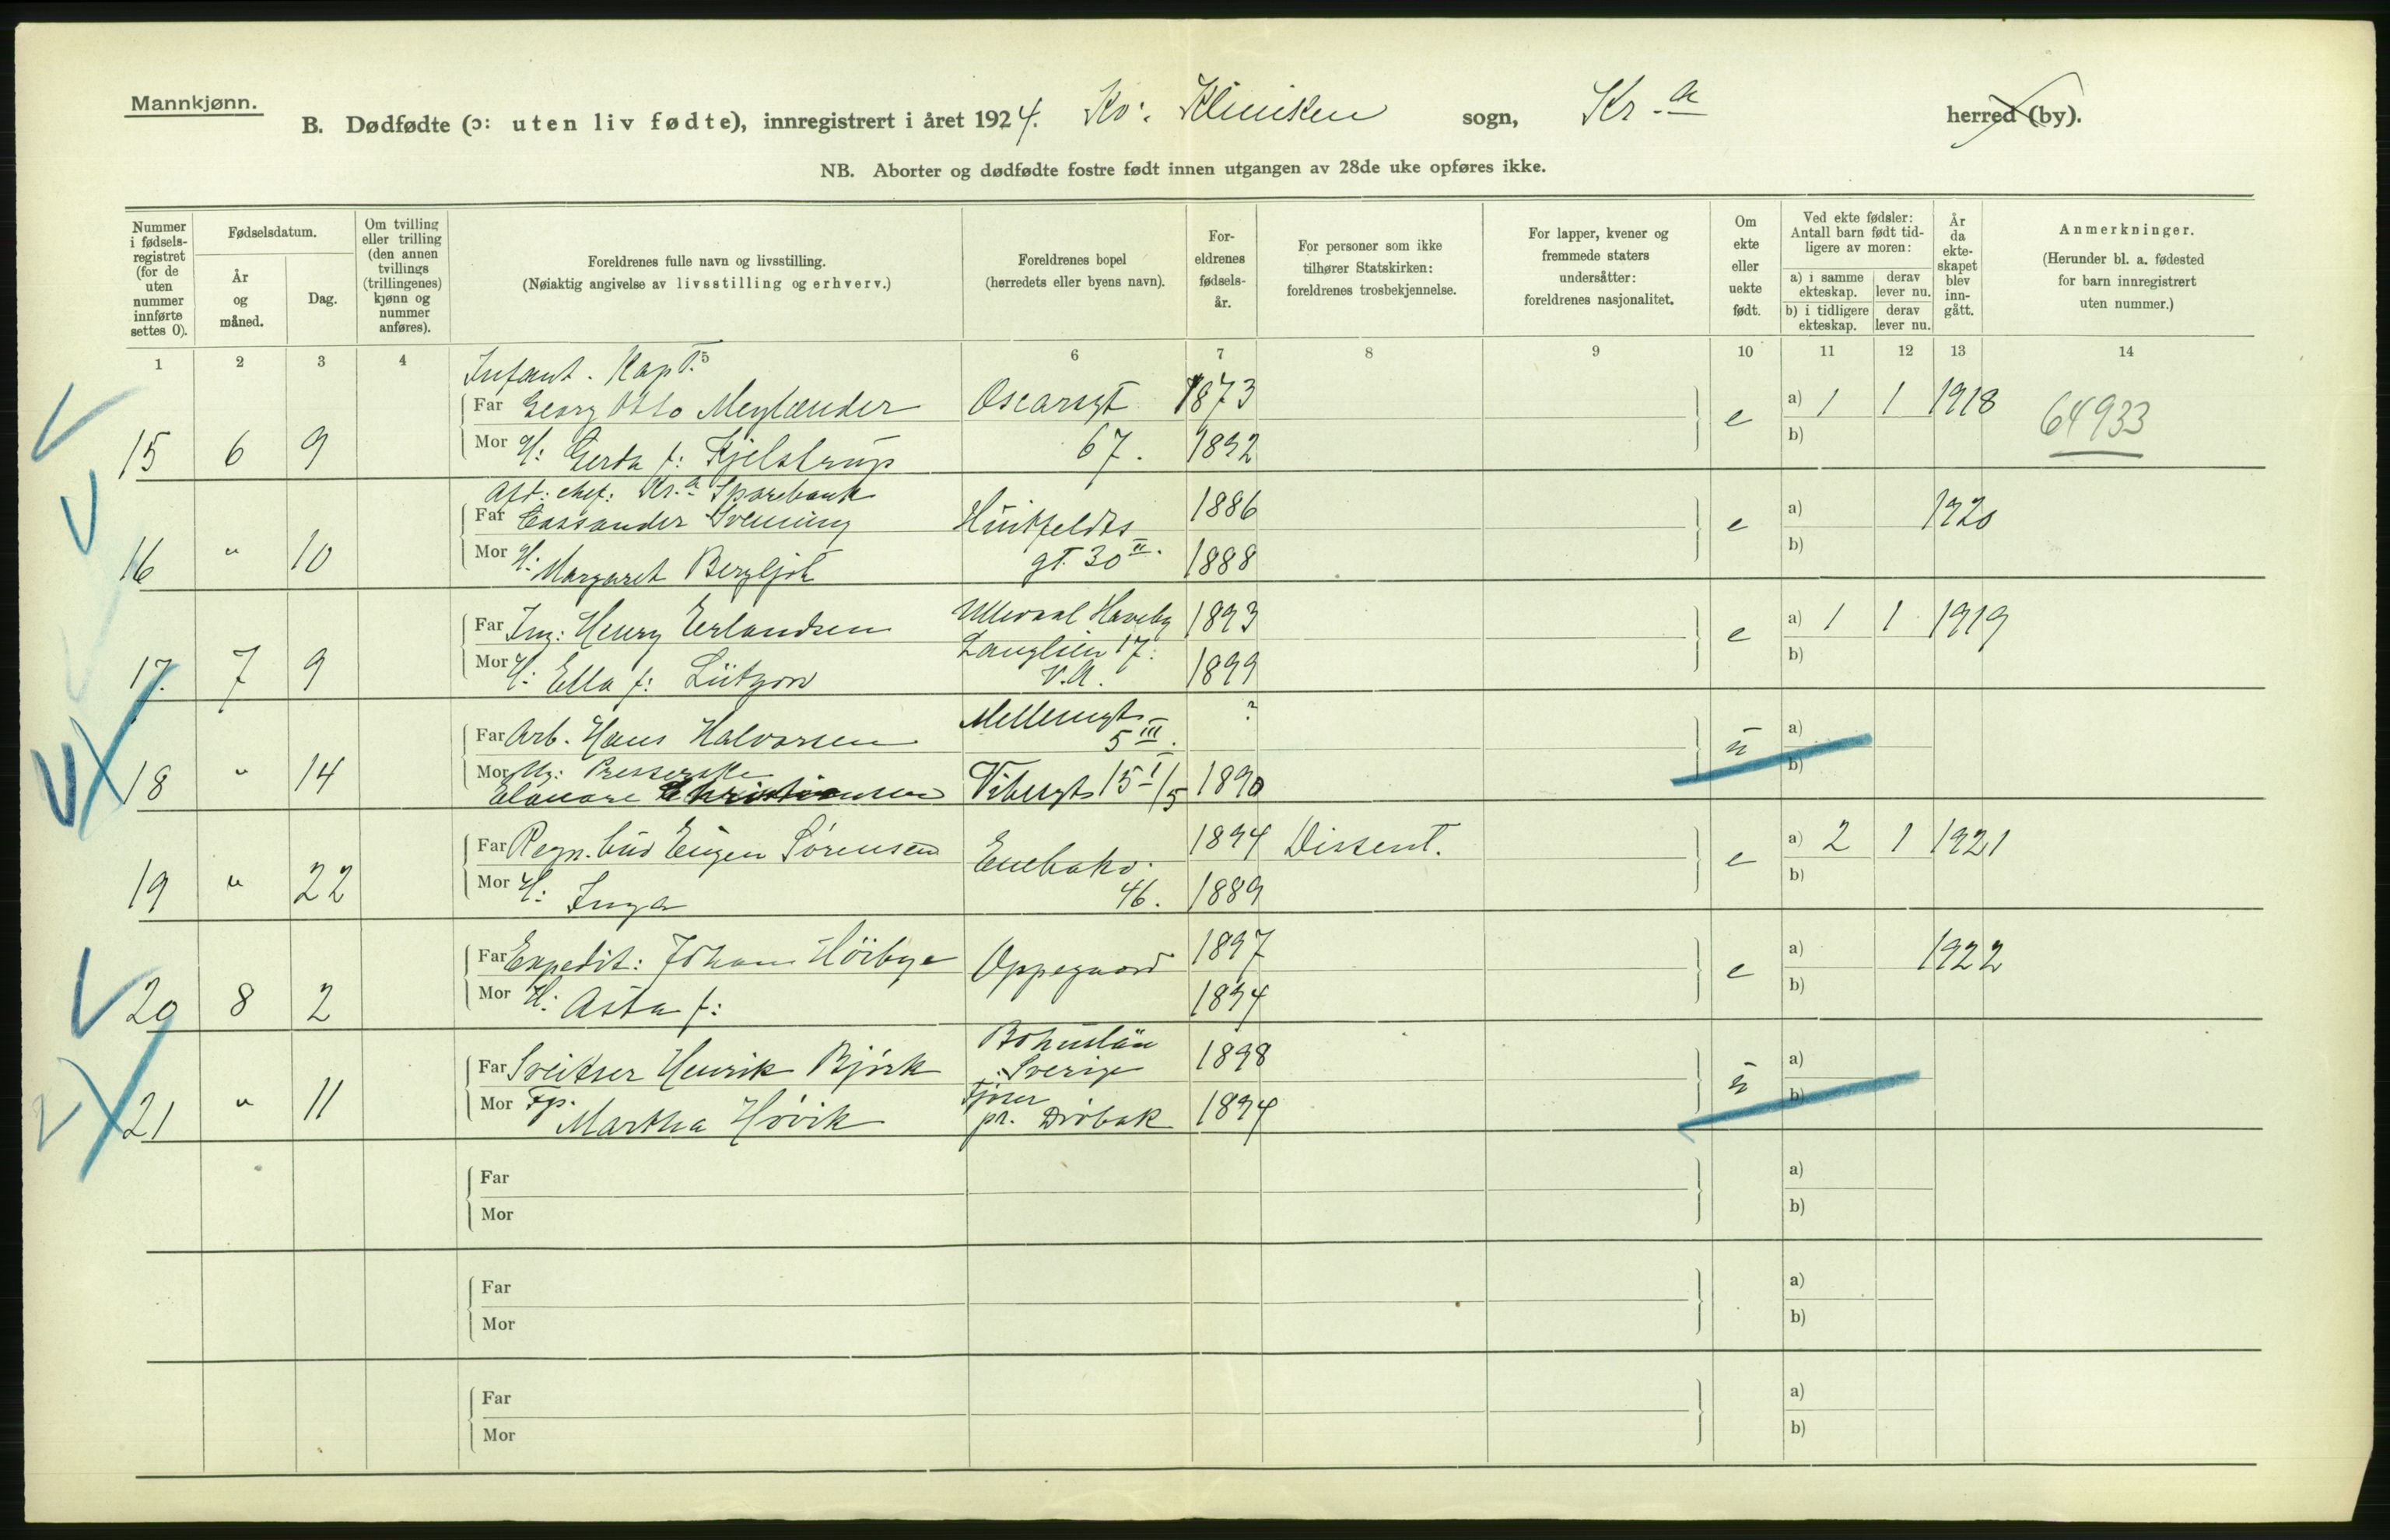 Mannkjønn.
B. Dødfødte (ɔ: uten liv fødte), innregistrert i året 1924. Kv: Kliniken sogn, Kr.a herred (by).
NB. Aborter og dødfødte fostre født innen utgangen av 28de uke opføres ikke.
Nummer i fødsels-registret (for de uten nummer innførte settes 0).
Fødselsdatum.
År og måned.
Dag.
Om tvilling eller trilling (den annen tvillings (trillingenes) kjønn og nummer anføres).
Foreldrenes fulle navn og livsstilling.
(Nøiaktig angivelse av livsstilling og erhverv.)
Foreldrenes bopel
(herredets eller byens navn).
For-eldrenes fødsels-år.
For personer som ikke tilhører Statskirken: foreldrenes trosbekjennelse.
For lapper, kvener og fremmede staters undersåtter: foreldrenes nasjonalitet.
Om ekte eller uekte født.
Ved ekte fødsler: Antall barn født tid-ligere av moren:
a) i samme ekteskap.
derav lever nu.
b) i tidligere ekteskap.
derav lever nu.
År da ekte-skapet blev inn-gått.
Anmerkninger.
(Herunder bl. a. fødested for barn innregistrert uten nummer.)
1 2 3 4 5 6 7 8 9 10 11 12 13 14
Infant. Kapt.
Far Georg Otto Meylænder Oscarsgt 1873 a) 1 1 1918
15 6 9 Mor H: Gerda f: Kjelstrup 67. 1892 e b) 64933
Afd: chef: Kr.a Sparebank
Far Cassander Svenning Huitfeldts 1886 a) 1920
16 " 10 Mor H: Margaret Bergljot gt. 30 II. 1888 e b)
Far Ing: Henry Erlandsen Ullevaal Haveby 1893 a) 1 1 1919
17. 7 9 Mor H: Ella f: Lützow Langlien 17. V.A. 1899 e b)
Far Arb. Hans Halvorsen Møllergt 5 III. ? a)
18 " 14 Mor Ug: Presserske ü b)
Elanore Christiansen Vibesgt 15 I/5 1890
Far Regn. bud Eugen Sørensen Enebakv. 1894 Dissent. a) 2 1 1921
19 " 22 Mor H: Inga 46. 1889 e b)
Far Expedit: Johan Höibye Oppegaard 1897 a) 1922
20 8 2 Mor H: Asta f: 1894 e b)
Far Sveitser Henrik Björk Bohuslän Sverige 1898 a)
21 " 11 Mor Tp. Martha Hövik pr. Dröbak 1894 ü b)
Far a)
Mor b)
Far a)
Mor b)
Far a)
Mor b)